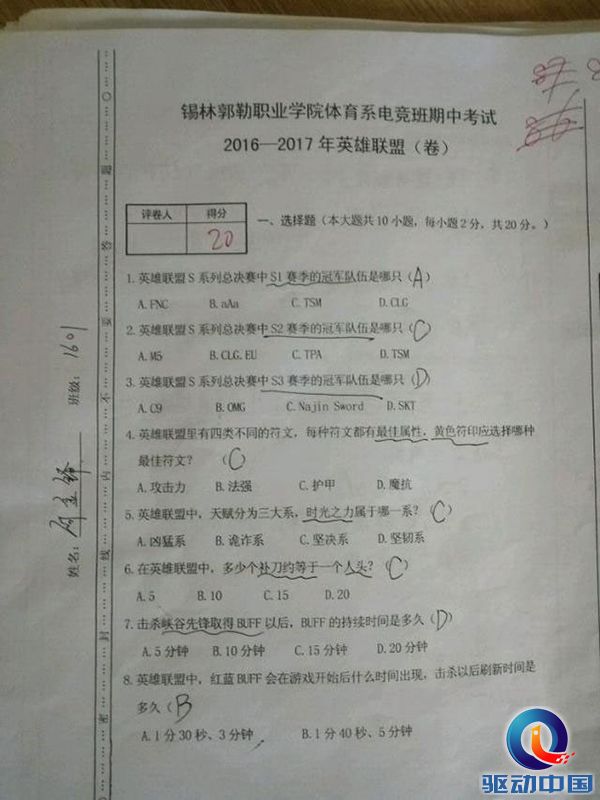 锡林郭勒职业学院体育系电竞班期中考试
2016—2017 年英雄联盟（卷）
评卷人 得分
20
一、选择题（本大题共 10 小题，每小题 2 分，共 20 分。）
1. 英雄联盟 S 系列总决赛中 S1 赛季的冠军队伍是哪只（A）
A. FNC B. aAa C. TSM D. CLG
2. 英雄联盟 S 系列总决赛中 S2 赛季的冠军队伍是哪只（C）
A. M5 B. CLG. EU C. TPA D. TSM
3. 英雄联盟 S 系列总决赛中 S3 赛季的冠军队伍是哪只（D）
A. C9 B. OMG C. Najin Sword D. SKT
4. 英雄联盟里有四类不同的符文，每种符文都有最佳属性，黄色符印应选择哪种
最佳符文？ （C）
A. 攻击力 B. 法强 C. 护甲 D. 魔抗
5. 英雄联盟中，天赋分为三大系，时光之力属于哪一系？（C）
A. 凶猛系 B. 诡诈系 C. 坚决系 D. 坚韧系
6. 在英雄联盟中，多少个补刀约等于一个人头？（C）
A. 5 B. 10 C. 15 D. 20
7. 击杀峡谷先锋取得 BUFF 以后，BUFF 的持续时间是多久（D）
A. 5 分钟 B. 10 分钟 C. 15 分钟 D. 20 分钟
8. 英雄联盟中，红蓝 BUFF 会在游戏开始后什么时间出现，击杀以后刷新时间是
多久（B
A. 1 分 30 秒、3 分钟 B. 1 分 40 秒、5 分钟
姓名：
班级：1601
密 封 线 内 不 要 答 题
驱动中国